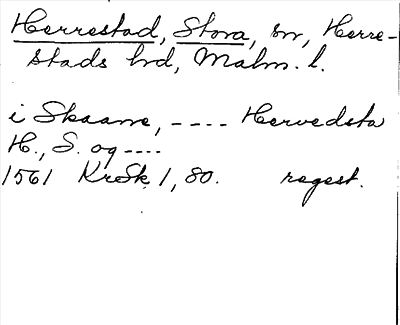 Herrestad, Stora, sn, Herre-
stads hd, Malm. l.
i Skaane, ---- Hervedsta
H., S. og ----
1561 KrSk 1, 80. regest.